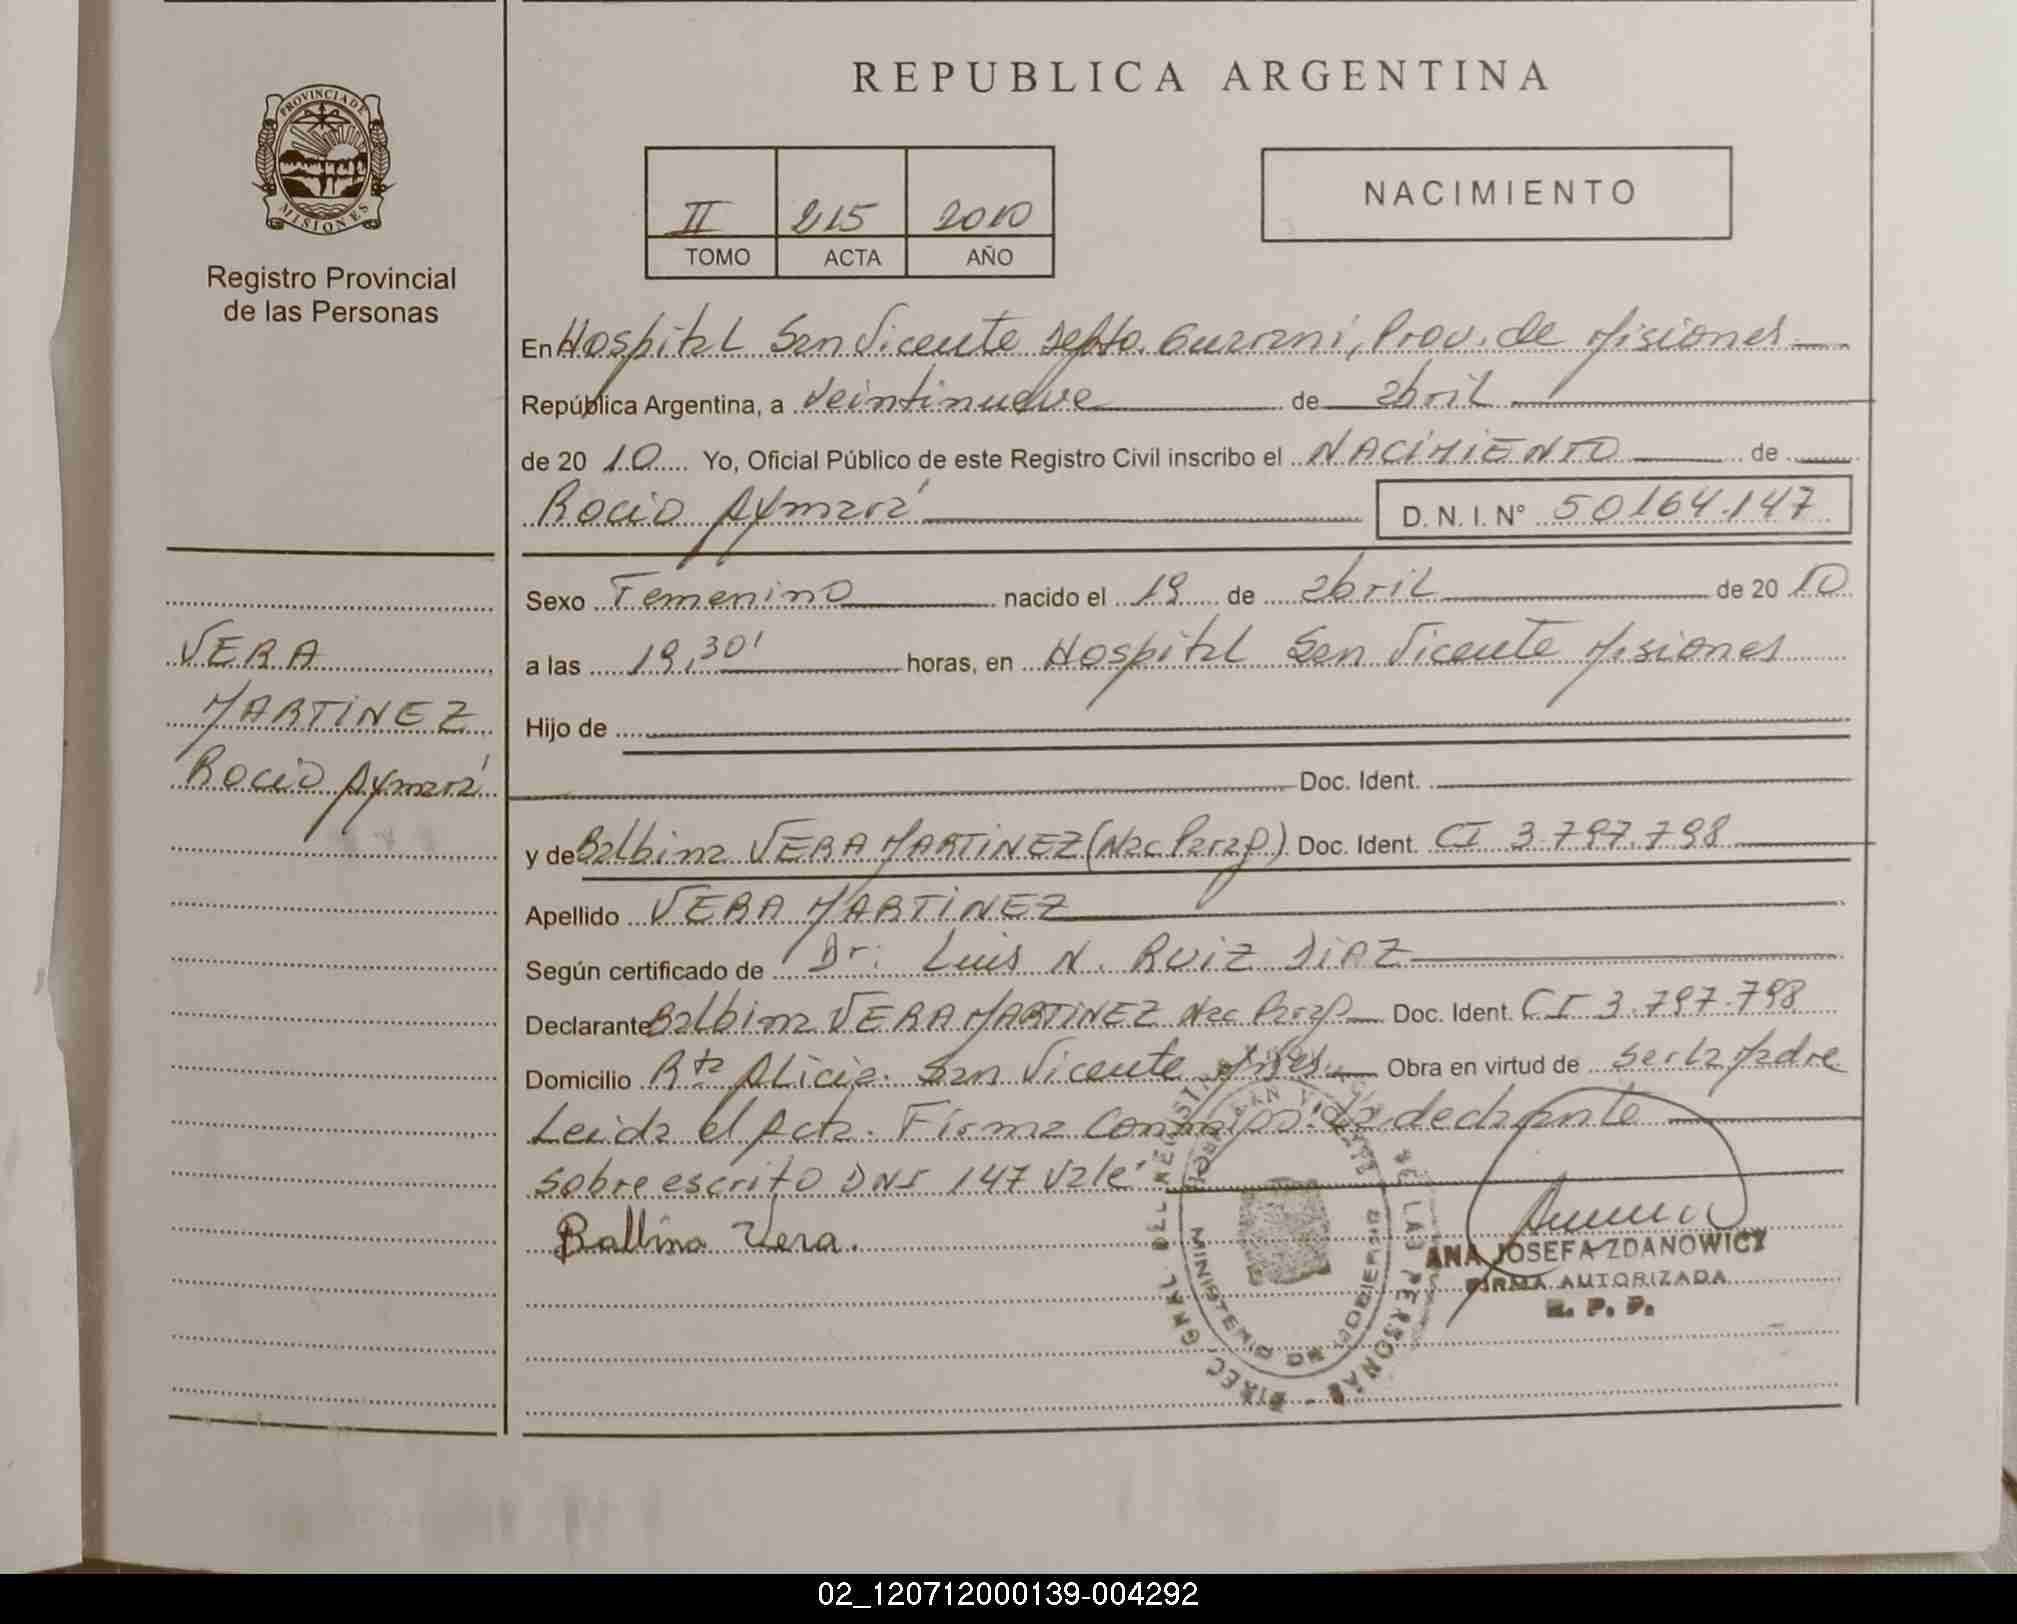 PROVINCIA DE
MISIONES
Registro Provincial
de las Personas
VERA
MARTINEZ
Rocio Aymará
REPUBLICA ARGENTINA
II 215 2010
TOMO ACTA AÑO
NACIMIENTO
En Hospital San Vicente Depto. Guarani, Prov. de Misiones
República Argentina, a veintinueve de abril
de 2010 Yo, Oficial Público de este Registro Civil inscribo el NACIMIENTO de
Rocio Aymará D. N. I. N° 50164.147
Sexo Femenino nacido el 19 de abril de 2010
a las 19,30' horas, en Hospital San Vicente Misiones
Hijo de
Doc. Ident.
y de Balbina VERA MARTINEZ (Nac Parag) Doc. Ident. CI 3.797.798
Apellido VERA MARTINEZ
Según certificado de Dr: Luis N. RUIZ DIAZ
Declarante Balbina VERA MARTINEZ Nac Parag Doc. Ident. CI 3.797.798
Domicilio Rta Alicia. San Vicente Mnes Obra en virtud de ser la Madre
Leida el Acta. Firma Conmigo la declarante
sobre escrito DNI 147 vale
Balbina Vera.
ANA JOSEFA ZDANOWICZ
FIRMA AUTORIZADA
R. P. P.
DIREC. GRAL. DEL REGISTRO DE LAS PERSONAS
MINISTERIO DE GOBIERNO
02_120712000139-004292